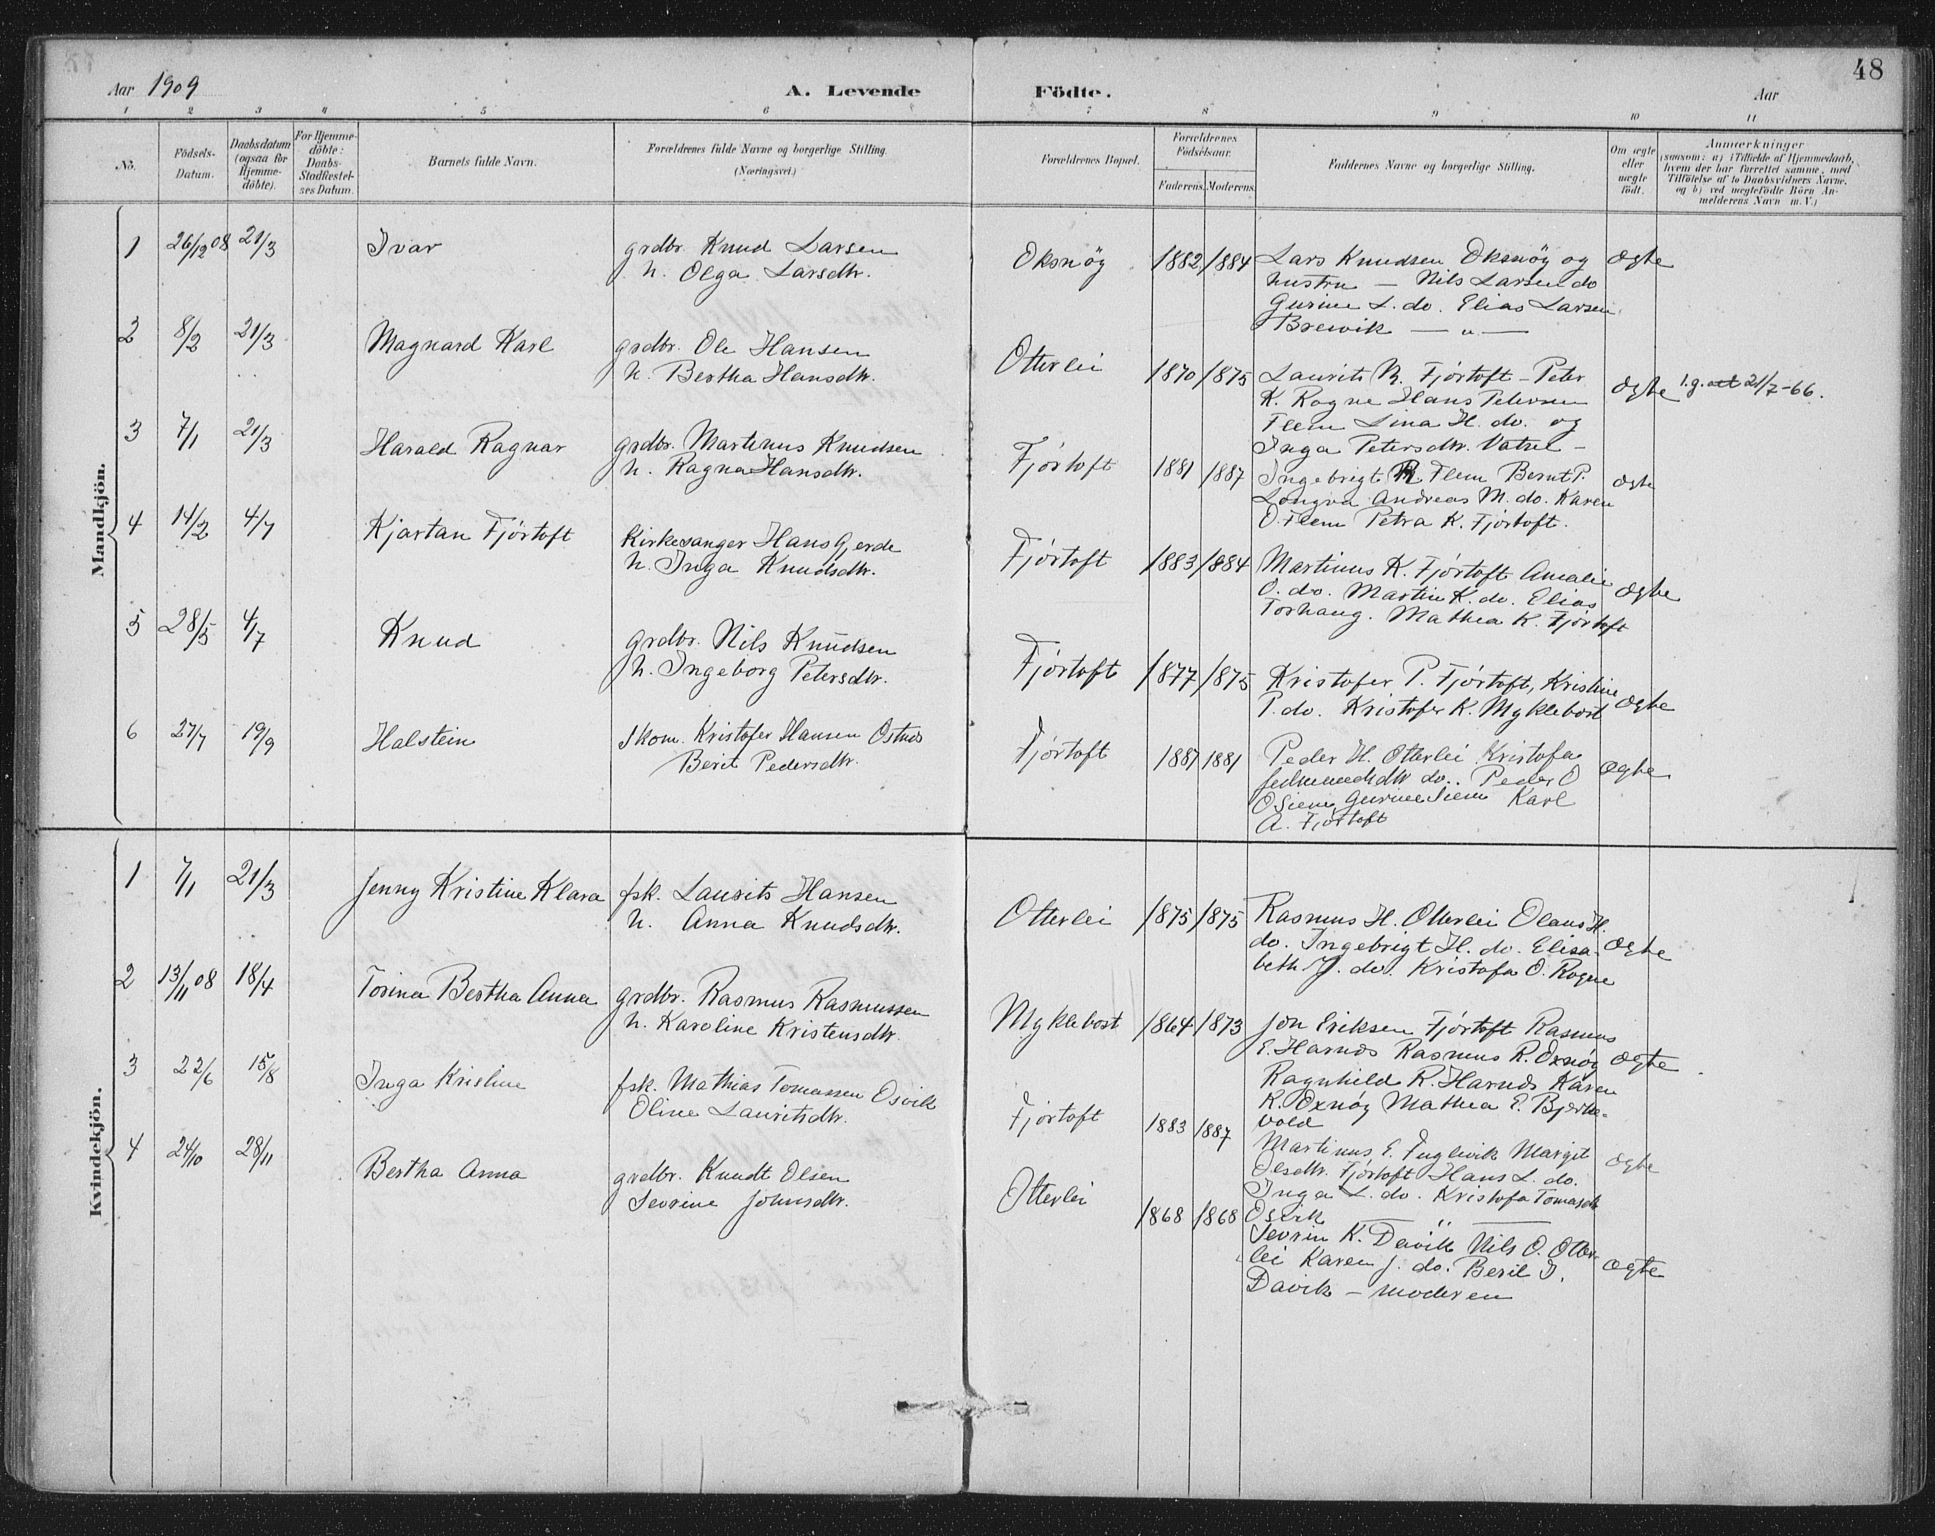 48
Aar 1909
A. Levende Födte.
Aar
1 2 3 4 5 6 7 8 9 10 11
No.
Födsels-Datum.
Daabsdatum (ogsaa for Hjemme-döbte).
For Hjemme-döbte: Daabs-Stadfæstel-ses Datum.
Barnets fulde Navn.
Forældrenes fulde Navne og borgerlige Stilling. (Næringsvei.)
Forældrenes Bopæl.
Forældrenes Födselsaar.
Faderens. Moderens.
Faddernes Navne og borgerlige Stilling.
Om ægte eller uægte födt.
Anmærkninger
(saasom: a) i Tilfælde af Hjemmedaab, hvem der har forrettet samme, med Tilföielse af to Daabsvidners Navne, og b) ved uægtefödte Börn An-melderens Navn m. V.)
Mandkjön.
1 26/12 08 21/3 Ivar grdbr. Knud Larsen
h. Olga Larsdtr.
Oksnøy 1882 1884 Lars Knudsen Oksnøy og ægte
hustru — Nils Larsen do
Gurine L. do. Elias Larsen
Brevik — " —
2 8/2 21/3 Magnard Karl grdbr. Ole Hansen
h. Bertha Hansdtr.
Otterlei 1870 1875 Laurits R. Fjørtoft - Peter ægte 1.g. 21/7-66.
K. Rogne Hans Petersen
Flem Lina H. do. og
Inga Petersdtr. Vatne -
3 7/1 21/3 Harald Ragnar grdbr. Martinus Knudsen
h. Ragna Hansdtr.
Fjørtoft 1881 1887 Ingebrigt R. Flem Bernt P. ægte
Longva Andreas M. do. Karen
O. Flem Petra K. Fjørtoft.
4 14/2 4/7 Kjartan Fjørtoft Kirkesanger Hans Gjerde
h. Inga Knudsdtr.
Fjørtoft 1883 1884 Martinus K. Fjørtoft Amalie ægte
O. do. Martin K. do. Elias
Torhaug. Mathea K. Fjørtoft
5 28/5 4/7 Knud grdbr. Nils Knudsen
h. Ingeborg Petersdtr.
Fjørtoft 1877 1875 Kristofer P. Fjørtoft, Kristine ægte
P. do. Kristofer K. Myklebost
6 27/7 19/9 Halstein skom. Kristofer Hansen Ostnes
Berit Pedersdtr.
Fjørtoft 1881 1881 Peder H. Otterlei Kristofa ægte
do. Peder O
Gurine Siem Karl
A. Fjørtoft
Kvindekjön.
1 7/1 21/3 Jenny Kristine Klara fsk. Laurits Hansen
h. Anna Knudsdtr.
Otterlei 1875 1875 Rasmus H. Otterlei Olaus H. ægte
do. Ingebrigt H. do. Elisa-
beth J. do. Kristofa O. Rogne
2 13/11 08 18/4 Torina Bertha Anna grdbr. Rasmus Rasmussen
h. Karoline Kristensdtr.
Myklebost 1864 1873 Jon Eriksen Fjørtoft Rasmus
E. Harnes Rasmus R. Oxnøy ægte
Ragnhild R. Harnes Karen
K. Oxnøy Mathea E. Bjerke-
vold
3 22/6 15/8 Inga Kristine fsk. Mathias Tomassen Osvik
Oline Lauritsdtr.
Fjørtoft 1883 1887 Martinus E. Fuglevik Margit ægte
Olsdtr. Fjørtoft Hans L. do.
Inga L. do. Kristofa Tomasdtr
Osvik
4 24/10 28/11 Bertha Anna grdbr. Knudt Olsen
Sevrine Johnsdtr.
Otterlei 1868 1868 Sevrin K. Davik Nils O. Otter-
lei Karen J. do. Beril I. ægte
Davik — moderen